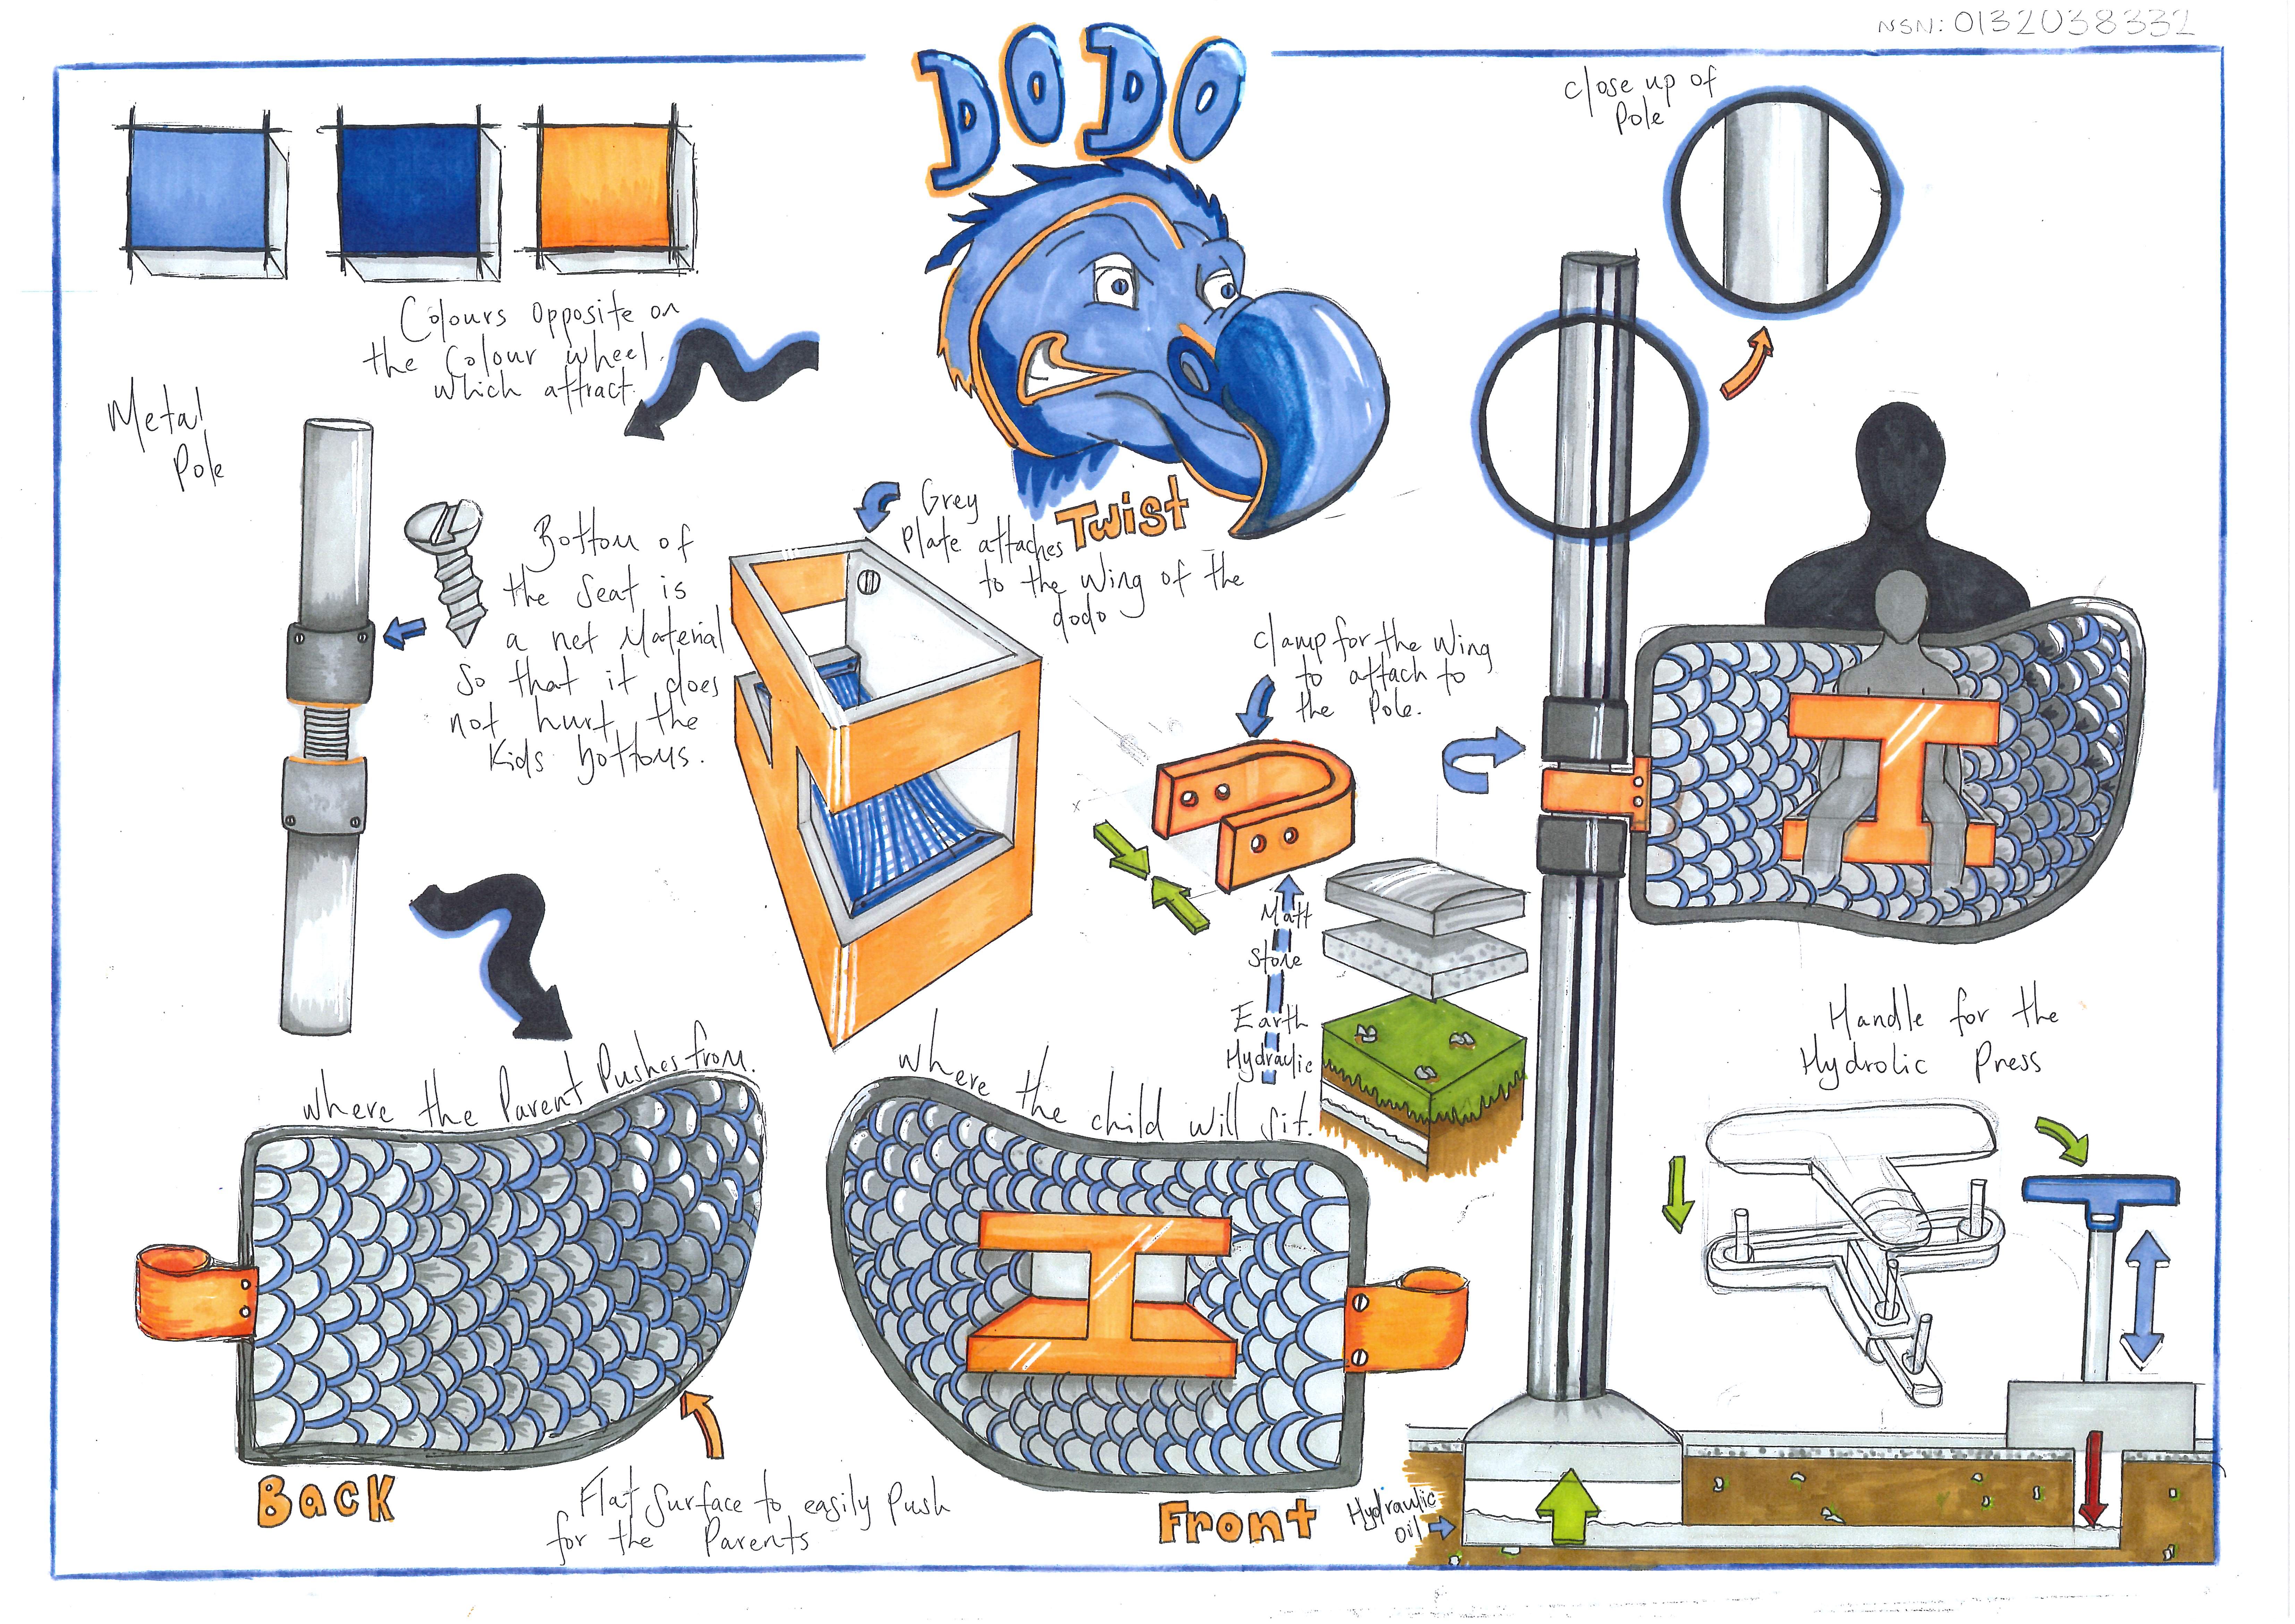 NSN: 0132038332
DODO
Twist
close up of
Pole
Colours opposite on
the Colour wheel
which attract.
Metal
Pole
Bottom of
the Seat is
a net Material
So that it does
not hurt the
Kids bottoms.
Grey
Plate attaches
to the Wing of the
dodo
clamp for the Wing
to attach to
the Pole.
Matt
Stone
Earth
Hydraulic
Handle for the
Hydrolic Press
where the Parent Pushes from.
where the child will sit.
Back
Flat Surface to easily Push
for the Parents
Front
Hydraulic
oil